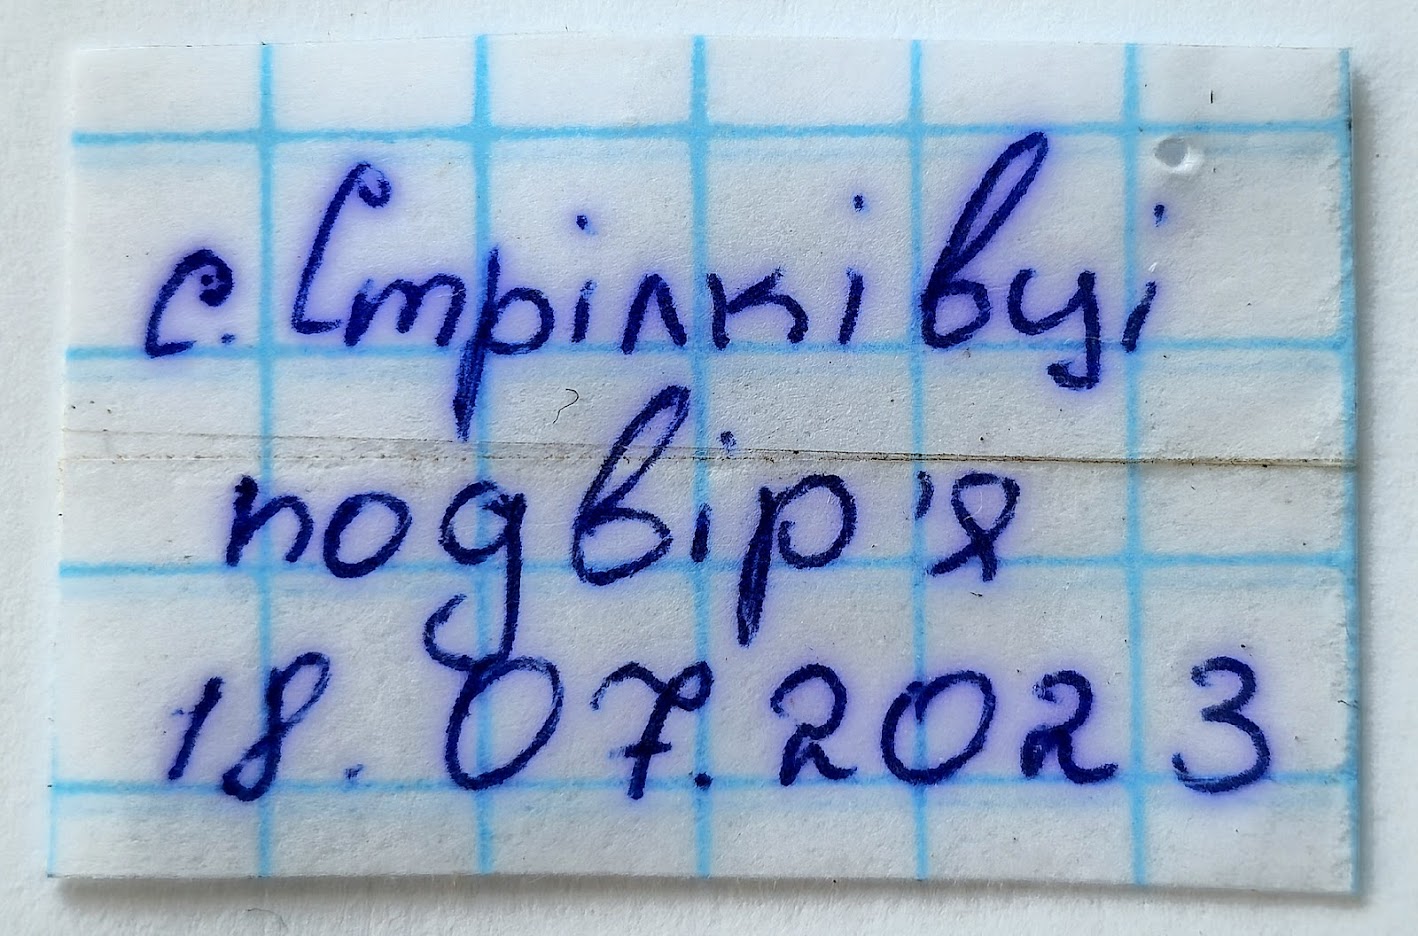 с. Стрілківці
подвір'я
18.07.2023